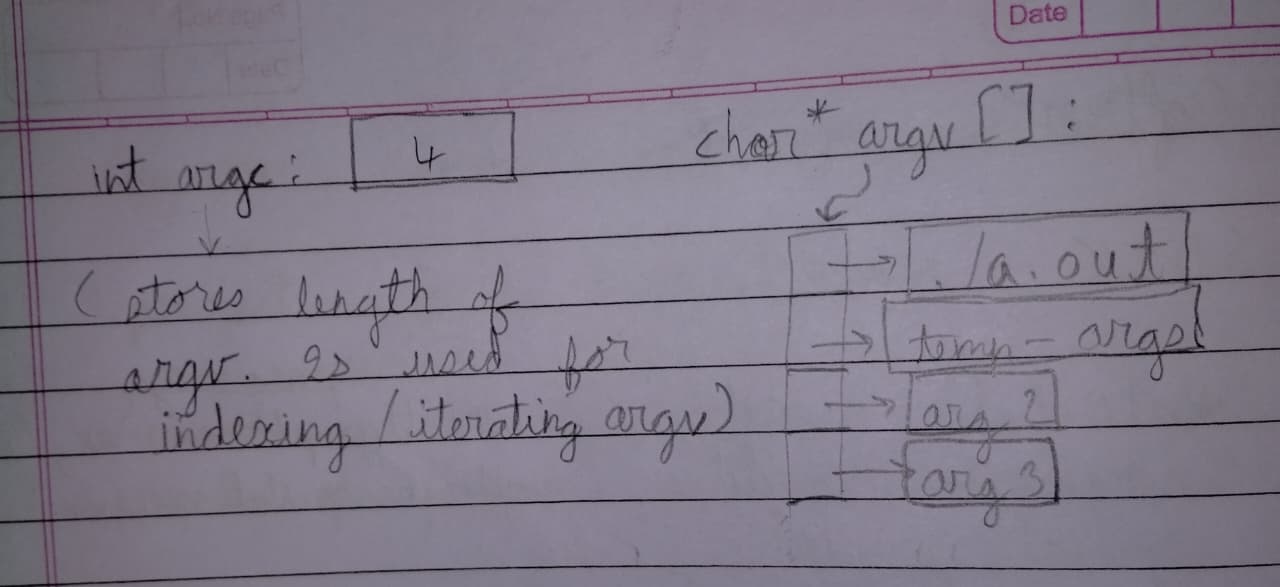 Date
int argc: 4
char* argv[]:
(stores length of
argv. Is used for
indexing/iterating argv)
./a.out
temp-args
arg 2
arg 3